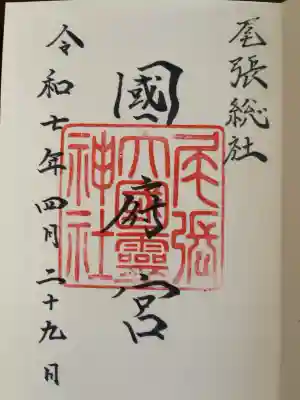 尾張総社
國府宮
尾張
大國靈
神社
令和七年四月二十九日